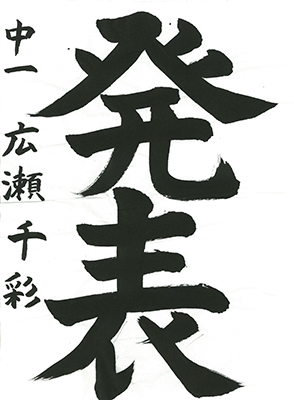 発表
中一 広瀬千彩